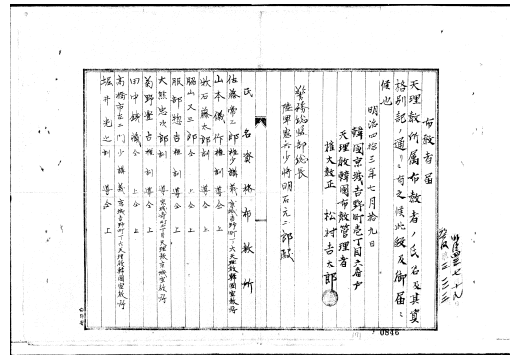 布教者届
天理教所属布教者ノ氏名及其資
格別記ノ通リニ有之候此段及御届
候也
明治四拾三年七月拾九日
韓国京城吉野町壱丁目六番戸
天理教韓国布教管理者
権大教正 松村吉太郎
警務総監部総長
陸軍憲兵少将明石元二郎殿
氏名 資格 布教所
佐藤常二郎 権少講義 京城吉野町一ノ六天理教韓国宣教所
山本儀作 権訓導 仝上
牧石藤太郎 訓導 仝上
脇山又三郎 仝上 仝上
服部 権訓導 仝上
大熊忠次郎 訓導
菊野 権訓導 仝上
田中 仝上 仝上
高橋市左エ門 少講義 京城吉野町一ノ六天理教韓国宣教所
堀井光之 訓導 仝上
0846